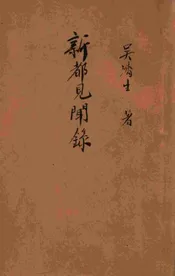 新都見聞錄
吳濟生 著